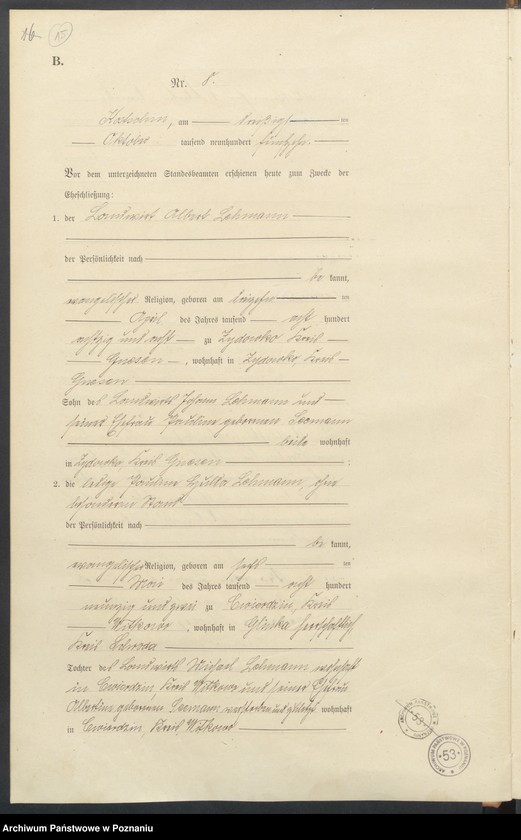 16
15
B.
Nr. 8.
am
Oktober tausend neunhundert fünfzehn.
Vor dem unterzeichneten Standesbeamten erschienen heute zum Zwecke der
Eheschließung:
1. der Landwirt Albert Lehmann
der Persönlichkeit nach
be kannt,
evangelischer Religion, geboren am
April des Jahres tausend acht hundert
achtzig und acht zu Zydowko Kreis
Gnesen, wohnhaft in Zydowko, Kreis
Gnesen
Sohn des Landwirts Johann Lehmann und
seiner Ehefrau Pauline geborenen
beide wohnhaft
in Zydowko, Kreis Gnesen
2. die ledige Pauline Hulda Lehmann, ohne
besonderen Stand
der Persönlichkeit nach
be kannt,
evangelischer Religion, geboren am
Mai des Jahres tausend acht hundert
neunzig und zwei zu Cwierdzin, Kreis
Witkowo, wohnhaft in
Kreis
Tochter des Landwirts Michael Lehmann wohnhaft
in Cwierdzin, Kreis Witkowo und seiner Ehefrau
Albertine geborenen verstorben und zuletzt wohnhaft
in Cwierdzin, Kreis Witkowo
53
53
Archiwum Państwowe w Poznaniu